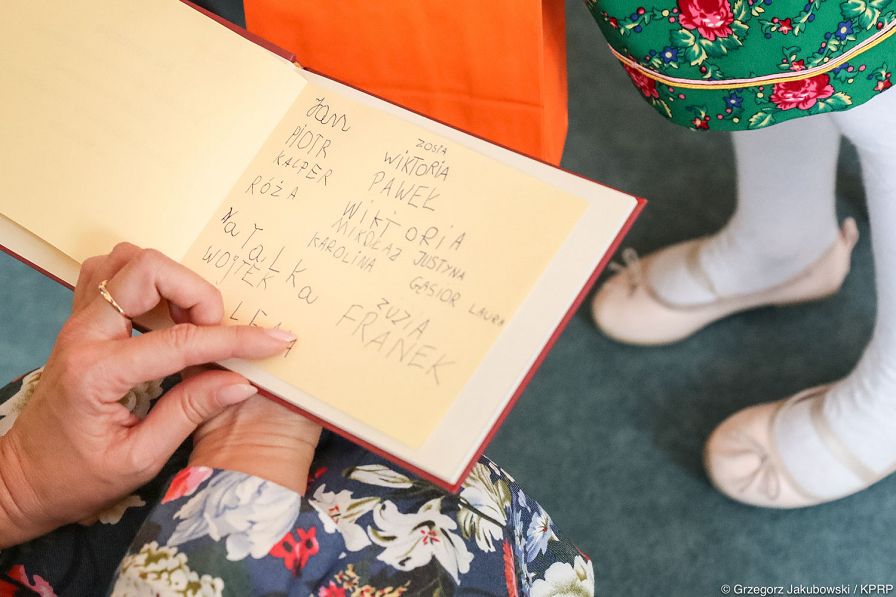 Jan
PIOTR
KACPER
RÓŻA
NaTaLKa
WOJTEK
LEA
ZOSIA
WIKTORIA
PAWEŁ
WIKTORIA
MIKOŁAJ JUSTYNA
KAROLINA GĄSIOR LAURA
ZUZIA
FRANEK
© Grzegorz Jakubowski / KPRP